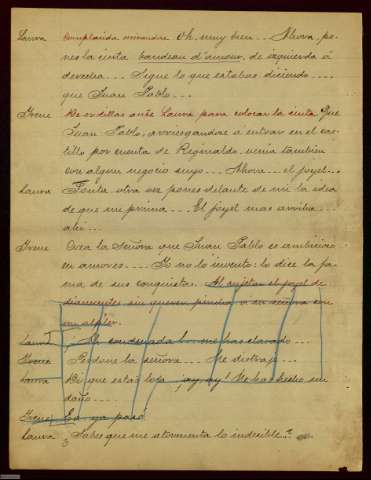 Laura Complacida mirandose Oh, muy bien... Ahora, po-
nes la cinta bandeau d'amour, de izquierda á
derecha.... Sigue lo que estabas diciendo....
que Juan Pablo....
Irene De rodillas ante Laura para colocar la cinta Que
Juan Pablo, arriesgandose á entrar en el cas-
tillo por cuenta de Reginaldo, venia tambien
con algun negocio suyo... Ahora... el joyel...
Laura Tonta otra vez pones delante de mi la idea
de que mi prima.... El joyel mas arriba...
ahi...
Irene Crea la señora que Juan Pablo es ambicioso
en amores.... Yo no lo invento: lo dice la fa-
ma de sus conquistas. Al sujetar el joyel de
diamantes sin querer pincha a su señora con
un alfiler.
Laura ¡Ay condenada me has clavado...
Irene Perdone la señora... Me distraje...
Laura Di que estás loca ¡ay, ay! Me has hecho un
daño....
Irene Ea ya pasó
Laura ¿Sabes que me atormenta lo indecible?